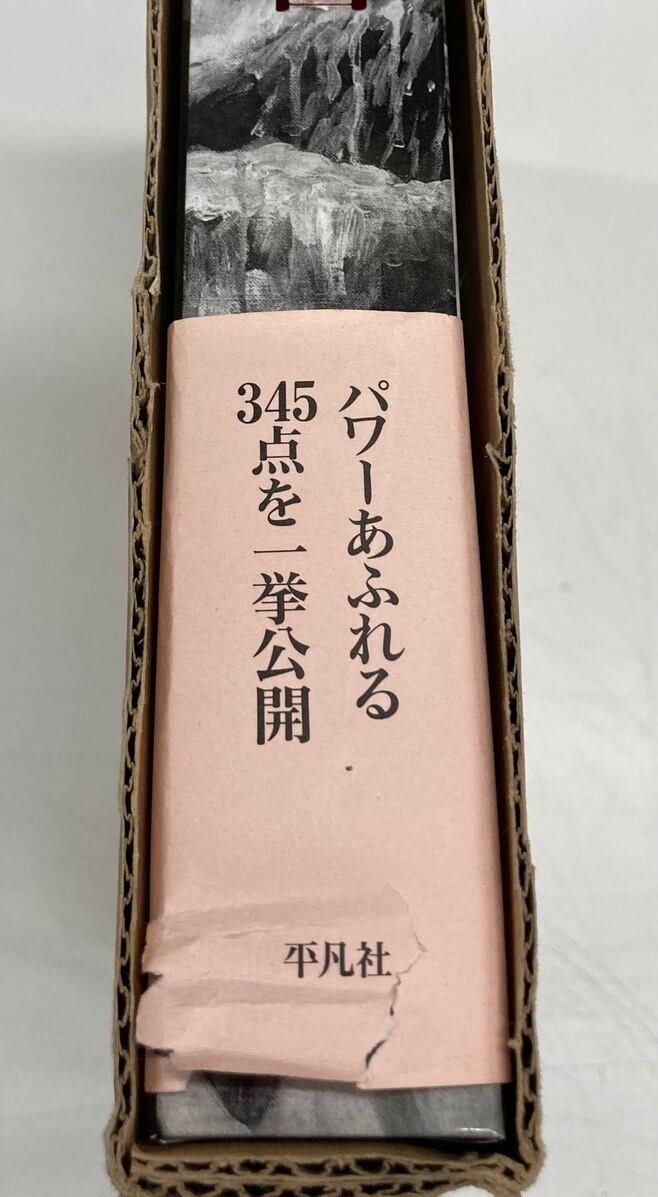 パワーあふれる
345点を一挙公開
平凡社